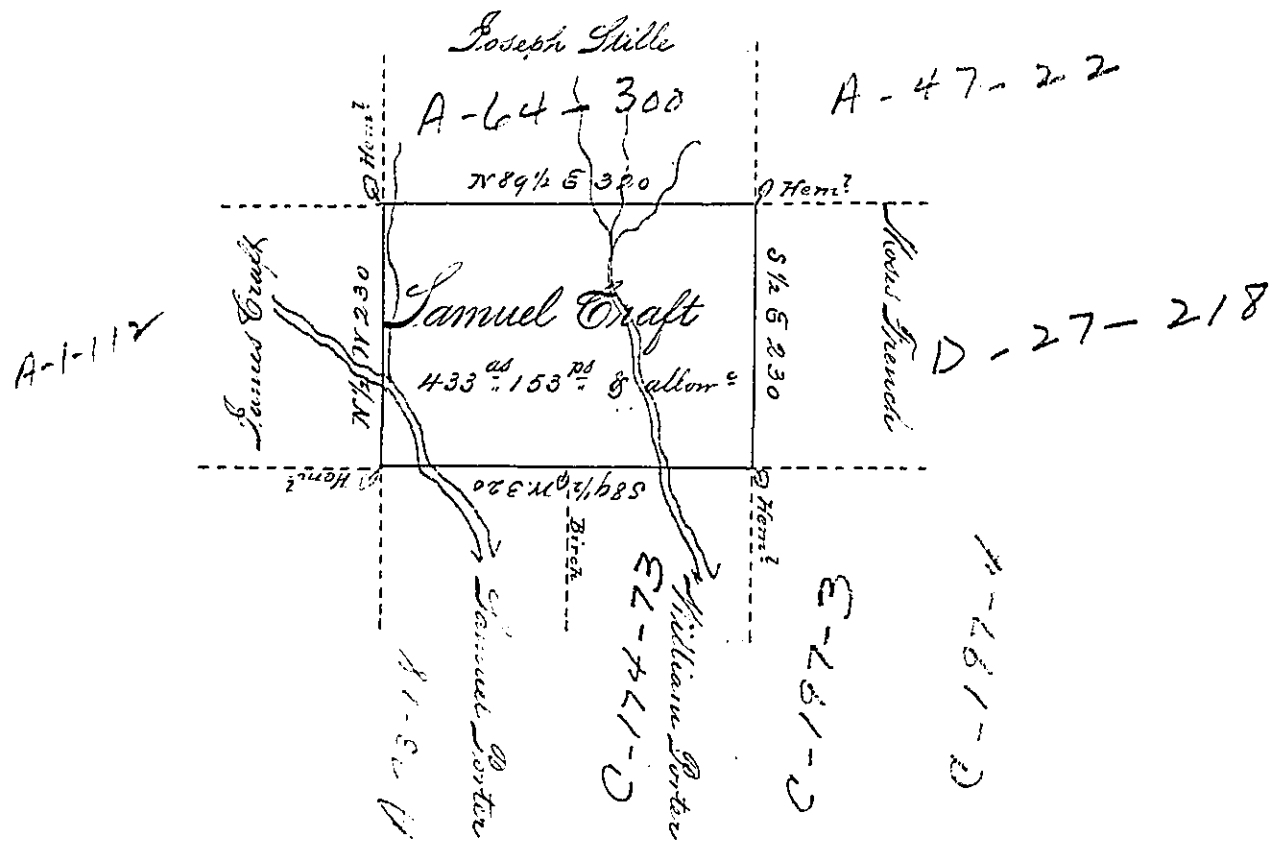 Joseph Stille
A-64-300
A-47-22
Hem^k
N 89½ E 320
Hem^k
James Craft
A-1-112
N ½ W 230
Samuel Craft
433 as 153 ps & allow^e
S ½ E 230
Moses French
D-27-218
Hem^k
S 89½ W 320
Hem^k
Birch
Samuel Porter
William Porter
C-174-73
C-187-3